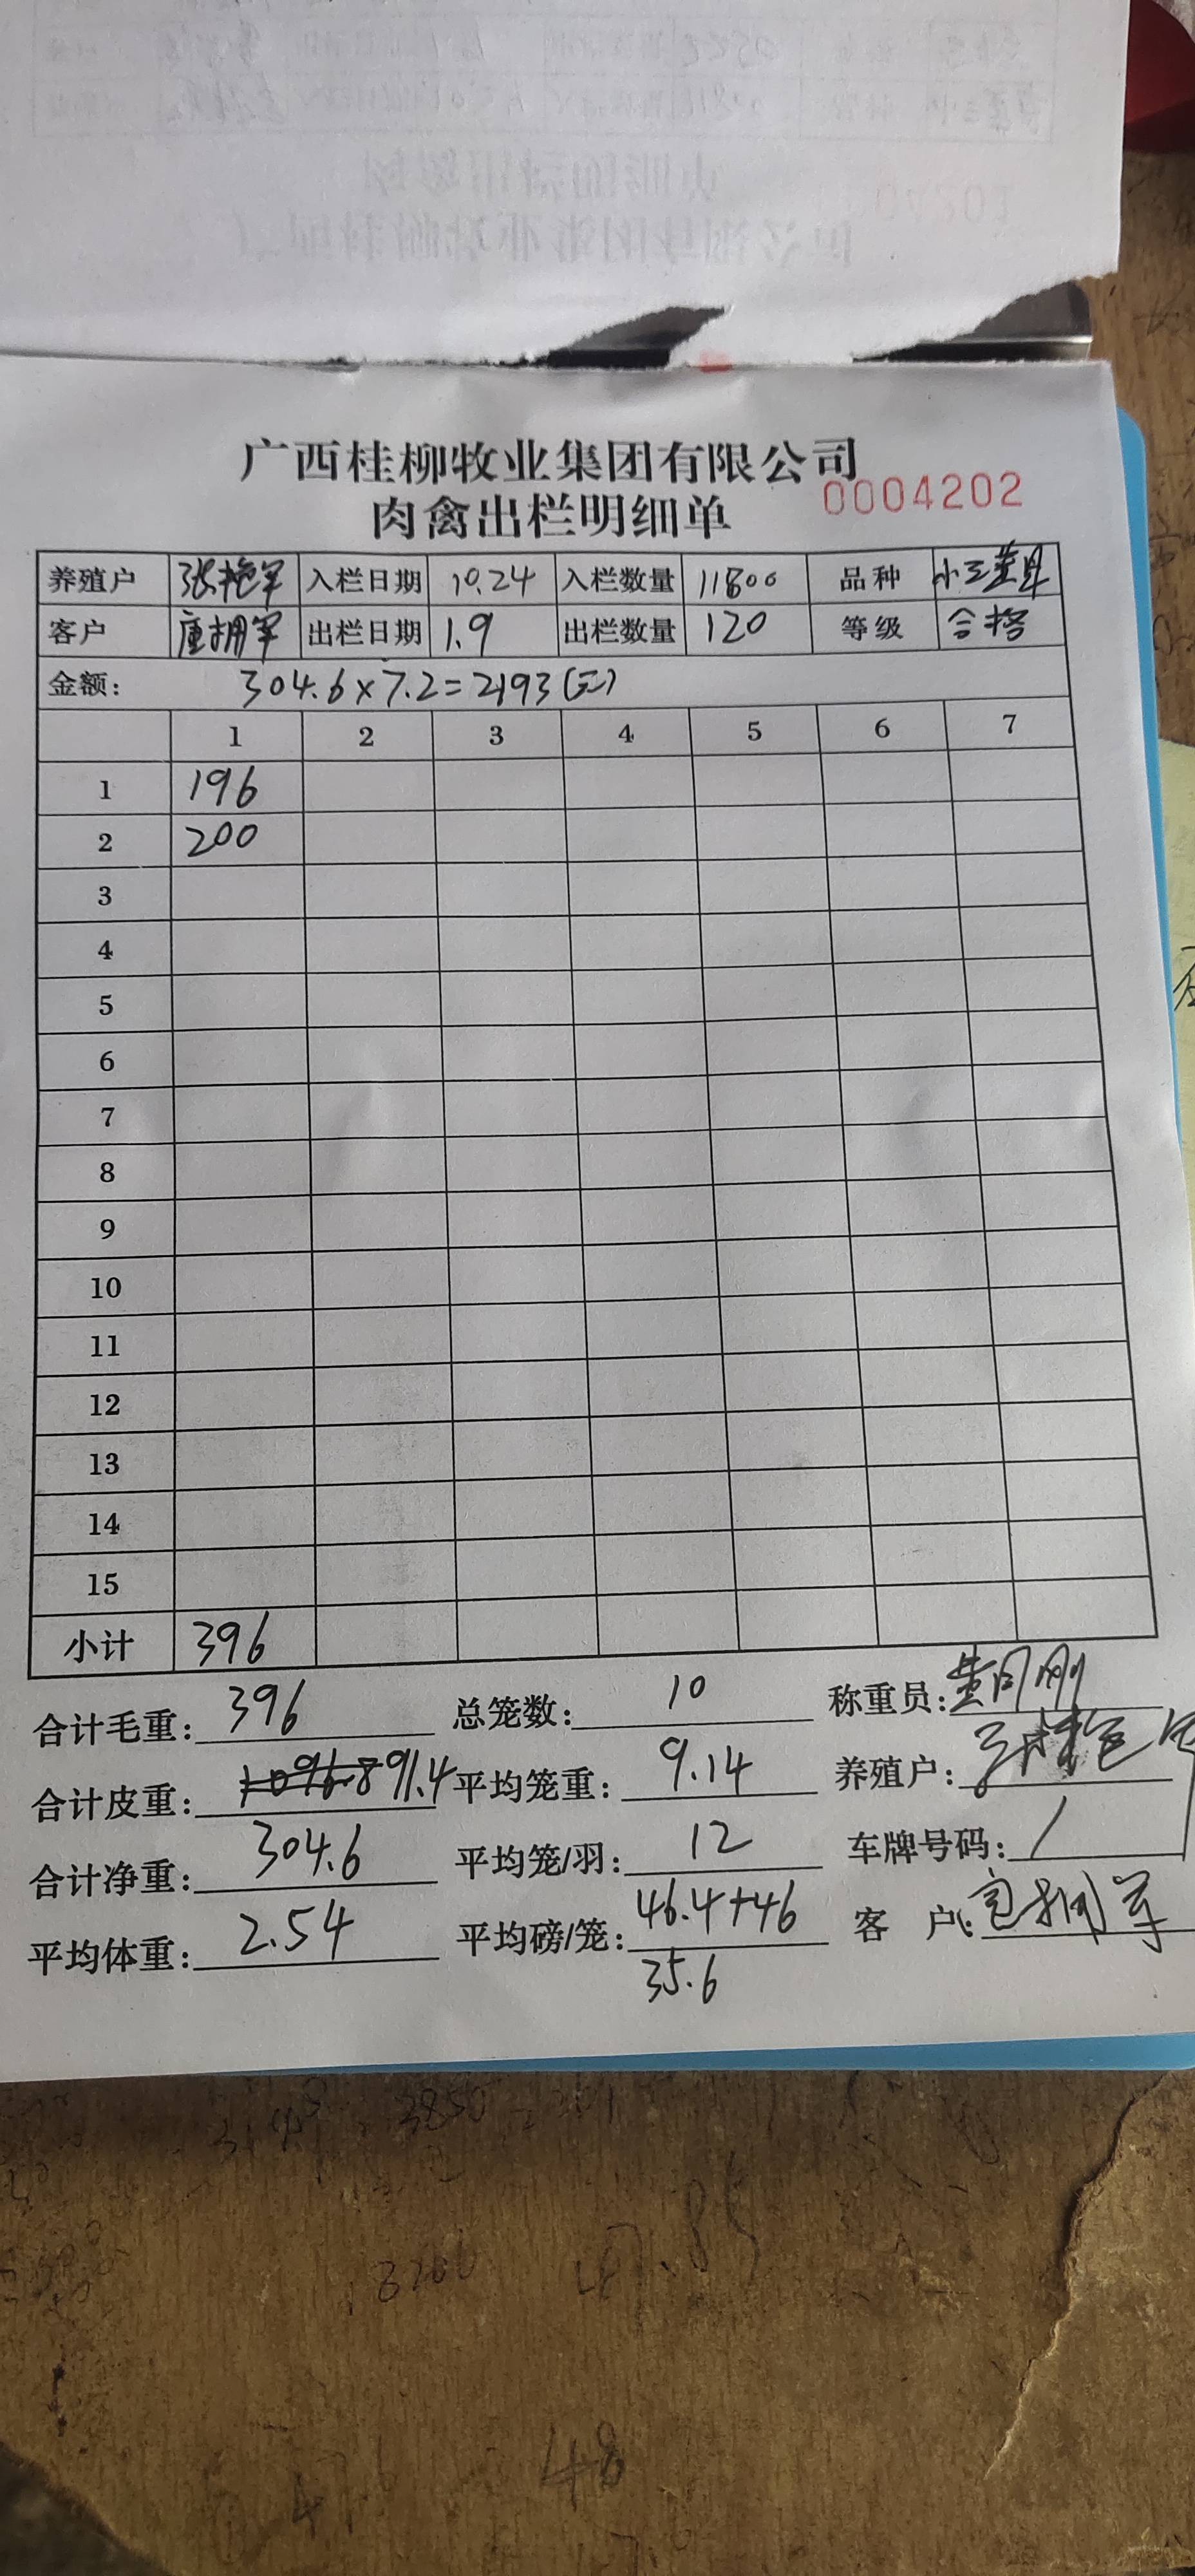 广西桂柳牧业集团有限公司
肉禽出栏明细单 0004202
养殖户 张艳军 入栏日期 10.24 入栏数量 11800 品种
客户 唐拥军 出栏日期 1.9 出栏数量 120 等级 合格
金额: 304.6×7.2=2193(元)
1 2 3 4 5 6 7
1 196
2 200
3
4
5
6
7
8
9
10
11
12
13
14
15
小计 396
合计毛重: 396 总笼数: 10 称重员:
合计皮重: 91.4 平均笼重: 9.14 养殖户:
合计净重: 304.6 平均笼/羽: 12 车牌号码: /
平均体重: 2.54 平均磅/笼: 46.4+46 客户:
35.6
3850
3200
47.85
48